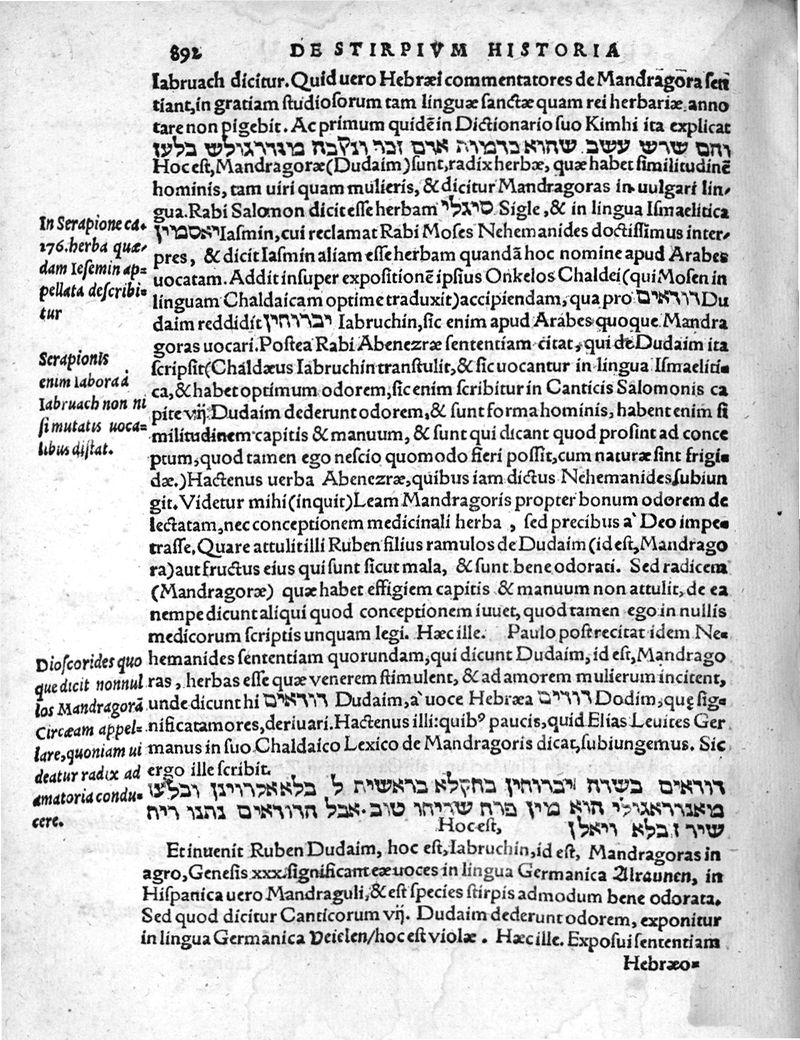 892 DE STIRPIVM HISTORIA
Iabruach dicitur. Quid uero Hebræi commentatores de Mandragora sen
tiant, in gratiam studiosorum tam linguæ sanctæ quam rei herbariæ anno
tare non pigebit. Ac primum quidẽ in Dictionario suo Kimhi ita explicat
והם שרש עשב שהוא כדמות אדם זכר ונקבה
Hoc est, Mandragoræ (Dudaim) sunt, radix herbæ, quæ habet similitudinẽ
hominis, tam uiri quam mulieris, & dicitur Mandragoras in uulgari lin-
gua. Rabi Salomon dicit esse herbam סיגלי Sigle, & in lingua Ismaelitica
יאסמין Iasmin, cui reclamat Rabi Moses Nehemanides doctissimus inter-
pres, & dicit Iasmin aliam esse herbam quandã hoc nomine apud Arabes
uocatam. Addit insuper expositionẽ ipsius Onkelos Chaldei (qui Mosen in
linguam Chaldaicam optime traduxit) accipiendam, qua pro דודאים Du
daim reddidit יברוחין Iabruchin, sic enim apud Arabes quoque Mandra
goras uocari. Postea Rabi Abenezræ sententiam citat, qui de Dudaim ita
scripsit (Chaldæus Iabruchin transtulit, & sic uocantur in lingua Ismaeliti-
ca, & habet optimum odorem, sic enim scribitur in Canticis Salomonis ca
pite vij: Dudaim dederunt odorem, & sunt forma hominis, habent enim si
militudinem capitis & manuum, & sunt qui dicant quod prosint ad conce
ptum, quod tamen ego nescio quomodo fieri possit, cum naturæ sint frigi-
dæ.) Hactenus uerba Abenezræ, quibus iam dictus Nehemanides subiun
git. Videtur mihi (inquit) Leam Mandragoris propter bonum odorem de
lectatam, nec conceptionem medicinali herba, sed precibus a' Deo impe-
trasse. Quare attulit illi Ruben filius ramulos de Dudaim (id est, Mandrago
ra) aut fructus eius qui sunt sicut mala, & sunt bene odorati. Sed radicem
(Mandragoræ) quæ habet effigiem capitis & manuum non attulit, de ea
nempe dicunt aliqui quod conceptionem iuuet, quod tamen ego in nullis
medicorum scriptis unquam legi. Hæc ille. Paulo post recitat idem Ne-
hemanides sententiam quorundam, qui dicunt Dudaim, id est, Mandrago
ras, herbas esse quæ venerem stimulent, & ad amorem mulierum incitent,
unde dicunt hi דודאים Dudaim, a' uoce Hebræa דודים Dodim, quę sig-
nificat amores, deriuari. Hactenus illi: quibꝰ paucis, quid Elias Leuites Ger
manus in suo Chaldaico Lexico de Mandragoris dicat, subiungemus. Sic
ergo ille scribit.
דודאים בשדה יברוחין בחקלא בראשית ל בלא
הוא מין פרח שריחו טוב אבל הדודאים נתנו ריח
שיר ז בלא Hoc est,
Et inuenit Ruben Dudaim, hoc est, Iabruchin, id est, Mandragoras in
agro, Genesis xxx. significant eæ uoces in lingua Germanica Alraunen, in
Hispanica uero Mandraguli, & est species stirpis admodum bene odorata.
Sed quod dicitur Canticorum vij. Dudaim dederunt odorem, exponitur
in lingua Germanica Veielen/ hoc est violæ. Hæc ille. Exposui sententiam
Hebræo-
In Serapione ca-
276. herba quæ-
dam Iesemin ap-
pellata describi-
tur
Serapionis
enim Iabora à
Iabruach non ni
si mutatis uoca-
libus distat.
Dioscorides quo
que dicit nonnul
los Mandragorã
Circæam appel-
lare, quoniam ui
deatur radix ad
amatoria condu-
cere.